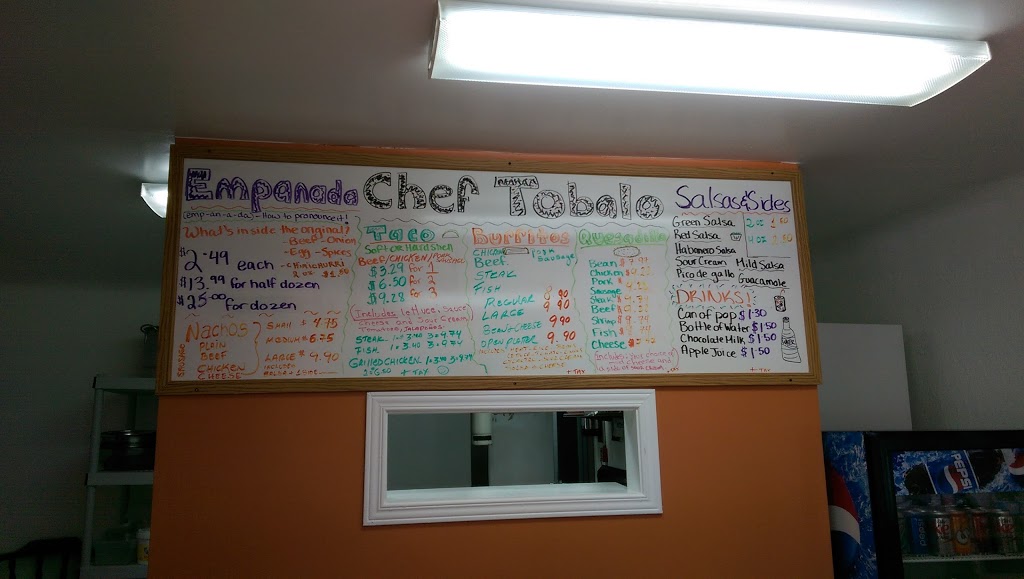 Empanada Chef Tobalo
(emp-an-a-da) - How to pronounce it!
What's inside the original?
- Beef - Onion
- Egg - Spices
- Chimichurri
2 oz $1.50
$2.49 each
$13.99 for half dozen
$25.00 for dozen
Nachos
PLAIN
BEEF
CHICKEN
CHEESE
SMALL $4.75
MEDIUM $6.75
LARGE $9.90
INCLUDES
Taco
Soft or Hard Shell
BEEF/CHICKEN/PORK
$3.29 for 1
$6.50 for 2
$9.28 for 3
Includes lettuce, sauce
cheese and sour cream
Tomatoes, Jalapeños
STEAK
FISH
+ TAX
Burritos
CHICKEN
BEEF
STEAK
FISH
PORK
Sausage
REGULAR 8.90
LARGE 9.90
BEAN+CHEESE 7.90
OPEN PLATER 9.90
+ TAX
Quesadilla
Bean
Chicken
Pork
Sausage
Steak
Beef
Shrimp
Fish
Cheese
Includes: your choice of
Salsas & Sides
Green Salsa 2 oz 1.50
Red Salsa 4 oz
Habanero Salsa
Sour Cream Mild Salsa
Pico de gallo Guacamole
DRINKS!
Can of pop $1.30
Bottle of Water $1.50
Chocolate Milk $1.50
Apple Juice $1.50
+ TAX
PEPSI